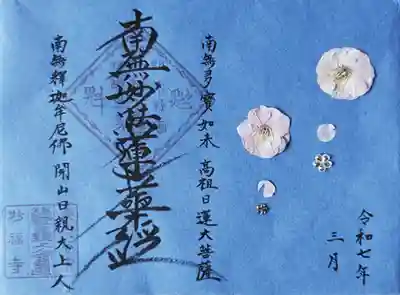 令和七年
三月
南無多寳如来　高祖日蓮大菩薩
南無妙法蓮華経
南無釋迦牟尼佛　開山日親大上人